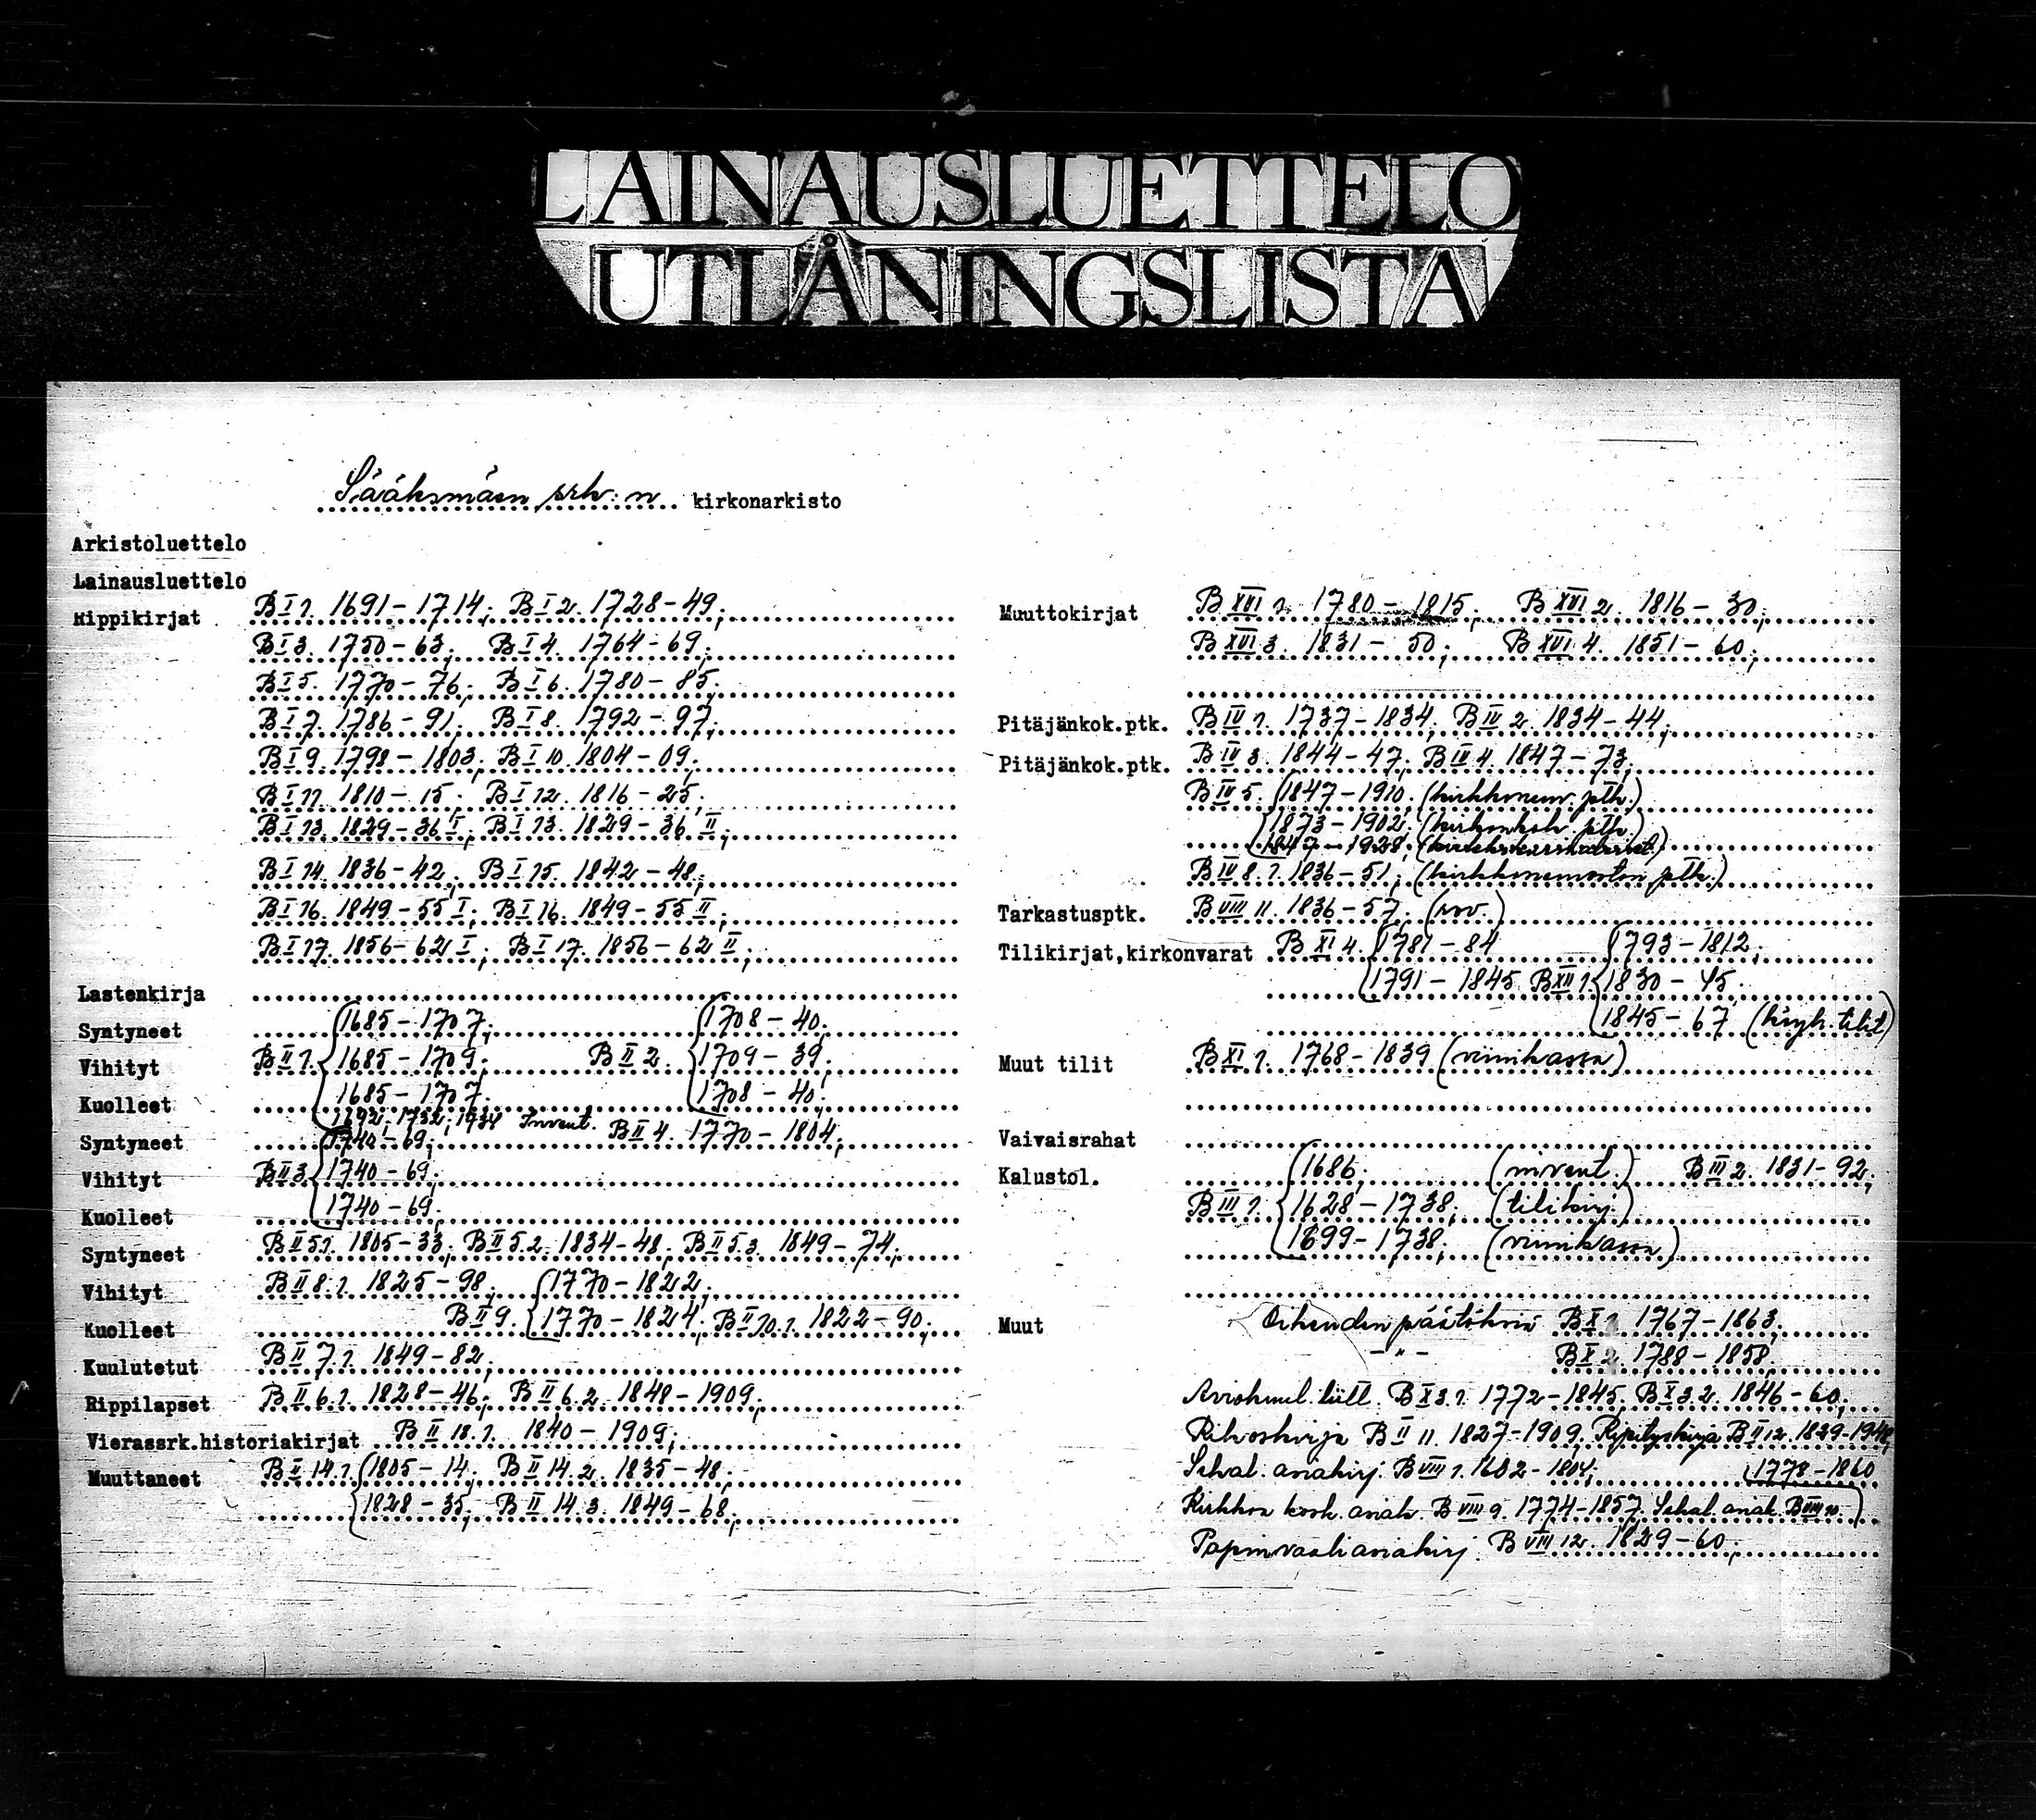 LAINAUSLUETTELO
UTLÅNINGSLISTA
Sääksmäen srk:n kirkonarkisto
Arkistoluettelo
Lainausluettelo
Rippikirjat B I 1. 1691-1714; B I 2. 1728-49;
B I 3. 1750-63; B I 4. 1764-69;
B I 5. 1770-76; B I 6. 1780-85;
B I 7. 1786-91; B I 8. 1792-97;
B I 9. 1798-1803; B I 10. 1804-09;
B I 11. 1810-15; B I 12. 1816-25;
B I 13. 1829-36 I; B I 13. 1829-36 II;
B I 14. 1836-42; B I 15. 1842-48;
B I 16. 1849-55 I; B I 16. 1849-55 II;
B I 17. 1856-62 I; B I 17. 1856-62 II;
Lastenkirja
Syntyneet 1685-1707; 1708-40;
Vihityt B II 1. 1685-1709; B II 2. 1709-39;
Kuolleet 1685-1707. 1708-40;
1692, 1732, 1734 Invent.
Syntyneet 1740-69; B II 4. 1770-1804;
Vihityt B II 3. 1740-69;
Kuolleet 1740-69.
Syntyneet B II 5.1. 1805-33; B II 5.2. 1834-48; B II 5.3. 1849-74;
Vihityt B II 8.1. 1825-98; 1770-1822;
Kuolleet B II 9. 1770-1824; B II 10.1. 1822-90;
Kuulutetut B II 7.1. 1849-82;
Rippilapset B II 6.1. 1828-46; B II 6.2. 1848-1909;
Vierassrk.historiakirjat B II 18.1. 1840-1909;
Muuttaneet B II 14.1. 1805-14; B II 14.2. 1835-48;
1828-35; B II 14.3. 1849-68;
Muuttokirjat B XVI 1. 1780-1815; B XVI 2. 1816-30;
B XVI 3. 1831-50; B XVI 4. 1851-60;
Pitäjänkok.ptk. B IV 1. 1737-1834; B IV 2. 1834-44;
Pitäjänkok.ptk. B IV 3. 1844-47; B IV 4. 1847-73;
B IV 5. 1847-1910; (kirkkoneuv. ptk.)
1873-1902; (kirkonkok. ptk.)
1847-1928;
B IV 8.1. 1836-51; (kirkkoneuvoston ptk.)
Tarkastusptk. B VIII 11. 1836-57; (rov.)
Tilikirjat,kirkonvarat B XI 4. 1781-84 1793-1812;
1791-1845 B XII 1. 1830-45.
1845-67 (köyh. tilit)
Muut tilit B XI 1. 1768-1839 (viinikassa)
Vaivaisrahat
Kalustol. 1686; (invent.) B III 2. 1831-92;
B III 1. 1628-1738; (tilikirj.)
1699-1738; (viinikassa)
Muut Oikeuden päätöksiä B X 1. 1767-1863;
-"- B X 2. 1788-1858;
Aviokuul. luett. B X 3.1. 1772-1845; B X 3.2. 1846-60;
Rikoskirja B II 11. 1827-1909; Ripityskirja B II 12. 1829-1948;
Sekal. asiakirj. B VIII 1. 1602-1804; 1778-1860
Kirkkoa kosk. asiak. B VIII 9. 1774-1857. Sekal. asiak. B VIII 10.
Papinvaaliasiakirj. B VIII 12. 1829-60;